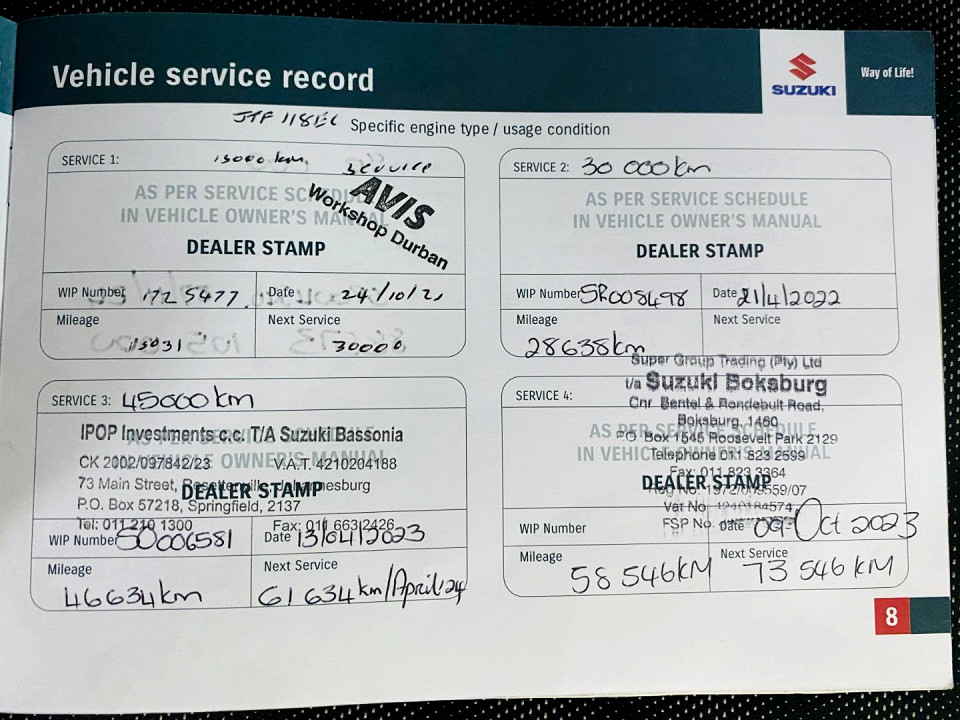 Vehicle service record
SUZUKI
Way of Life!
JTF 118EC
Specific engine type / usage condition
SERVICE 1: 15000 km
service
AS PER SERVICE SCHEDULE
IN VEHICLE OWNER'S MANUAL
AVIS
Workshop Durban
DEALER STAMP
WIP Number 1725477 Date 24/10/21
Mileage Next Service
15031 30000
SERVICE 2: 30 000km
AS PER SERVICE SCHEDULE
IN VEHICLE OWNER'S MANUAL
DEALER STAMP
WIP Number SR008498 Date 21/4/2022
Mileage Next Service
28638km
SERVICE 3: 45000km
IPOP Investments c.c. T/A Suzuki Bassonia
AS PER SERVICE SCHEDULE
CK 2002/097842/23 V.A.T. 4210204188
IN VEHICLE OWNER'S MANUAL
73 Main Street, Rosettenville, Johannesburg
DEALER STAMP
P.O. Box 57218, Springfield, 2137
Tel: 011 210 1300 Fax: 011 663 2426
WIP Number 50006581 Date 13/04/2023
Mileage Next Service
46634km 61 634km/April'24
Super Group Trading (Pty) Ltd
t/a Suzuki Boksburg
SERVICE 4:
Cnr Bentel & Rondebult Road,
Boksburg, 1460
AS PER SERVICE SCHEDULE
PO Box 1545 Roosevelt Park 2129
IN VEHICLE OWNER'S MANUAL
Telephone 011 823 2599
Fax: 011 823 3364
DEALER STAMP
Reg No. 1972/009559/07
Vat No
FSP No.
WIP Number Date 09 Oct 2023
Mileage Next Service
58 546KM 73 546 KM
8